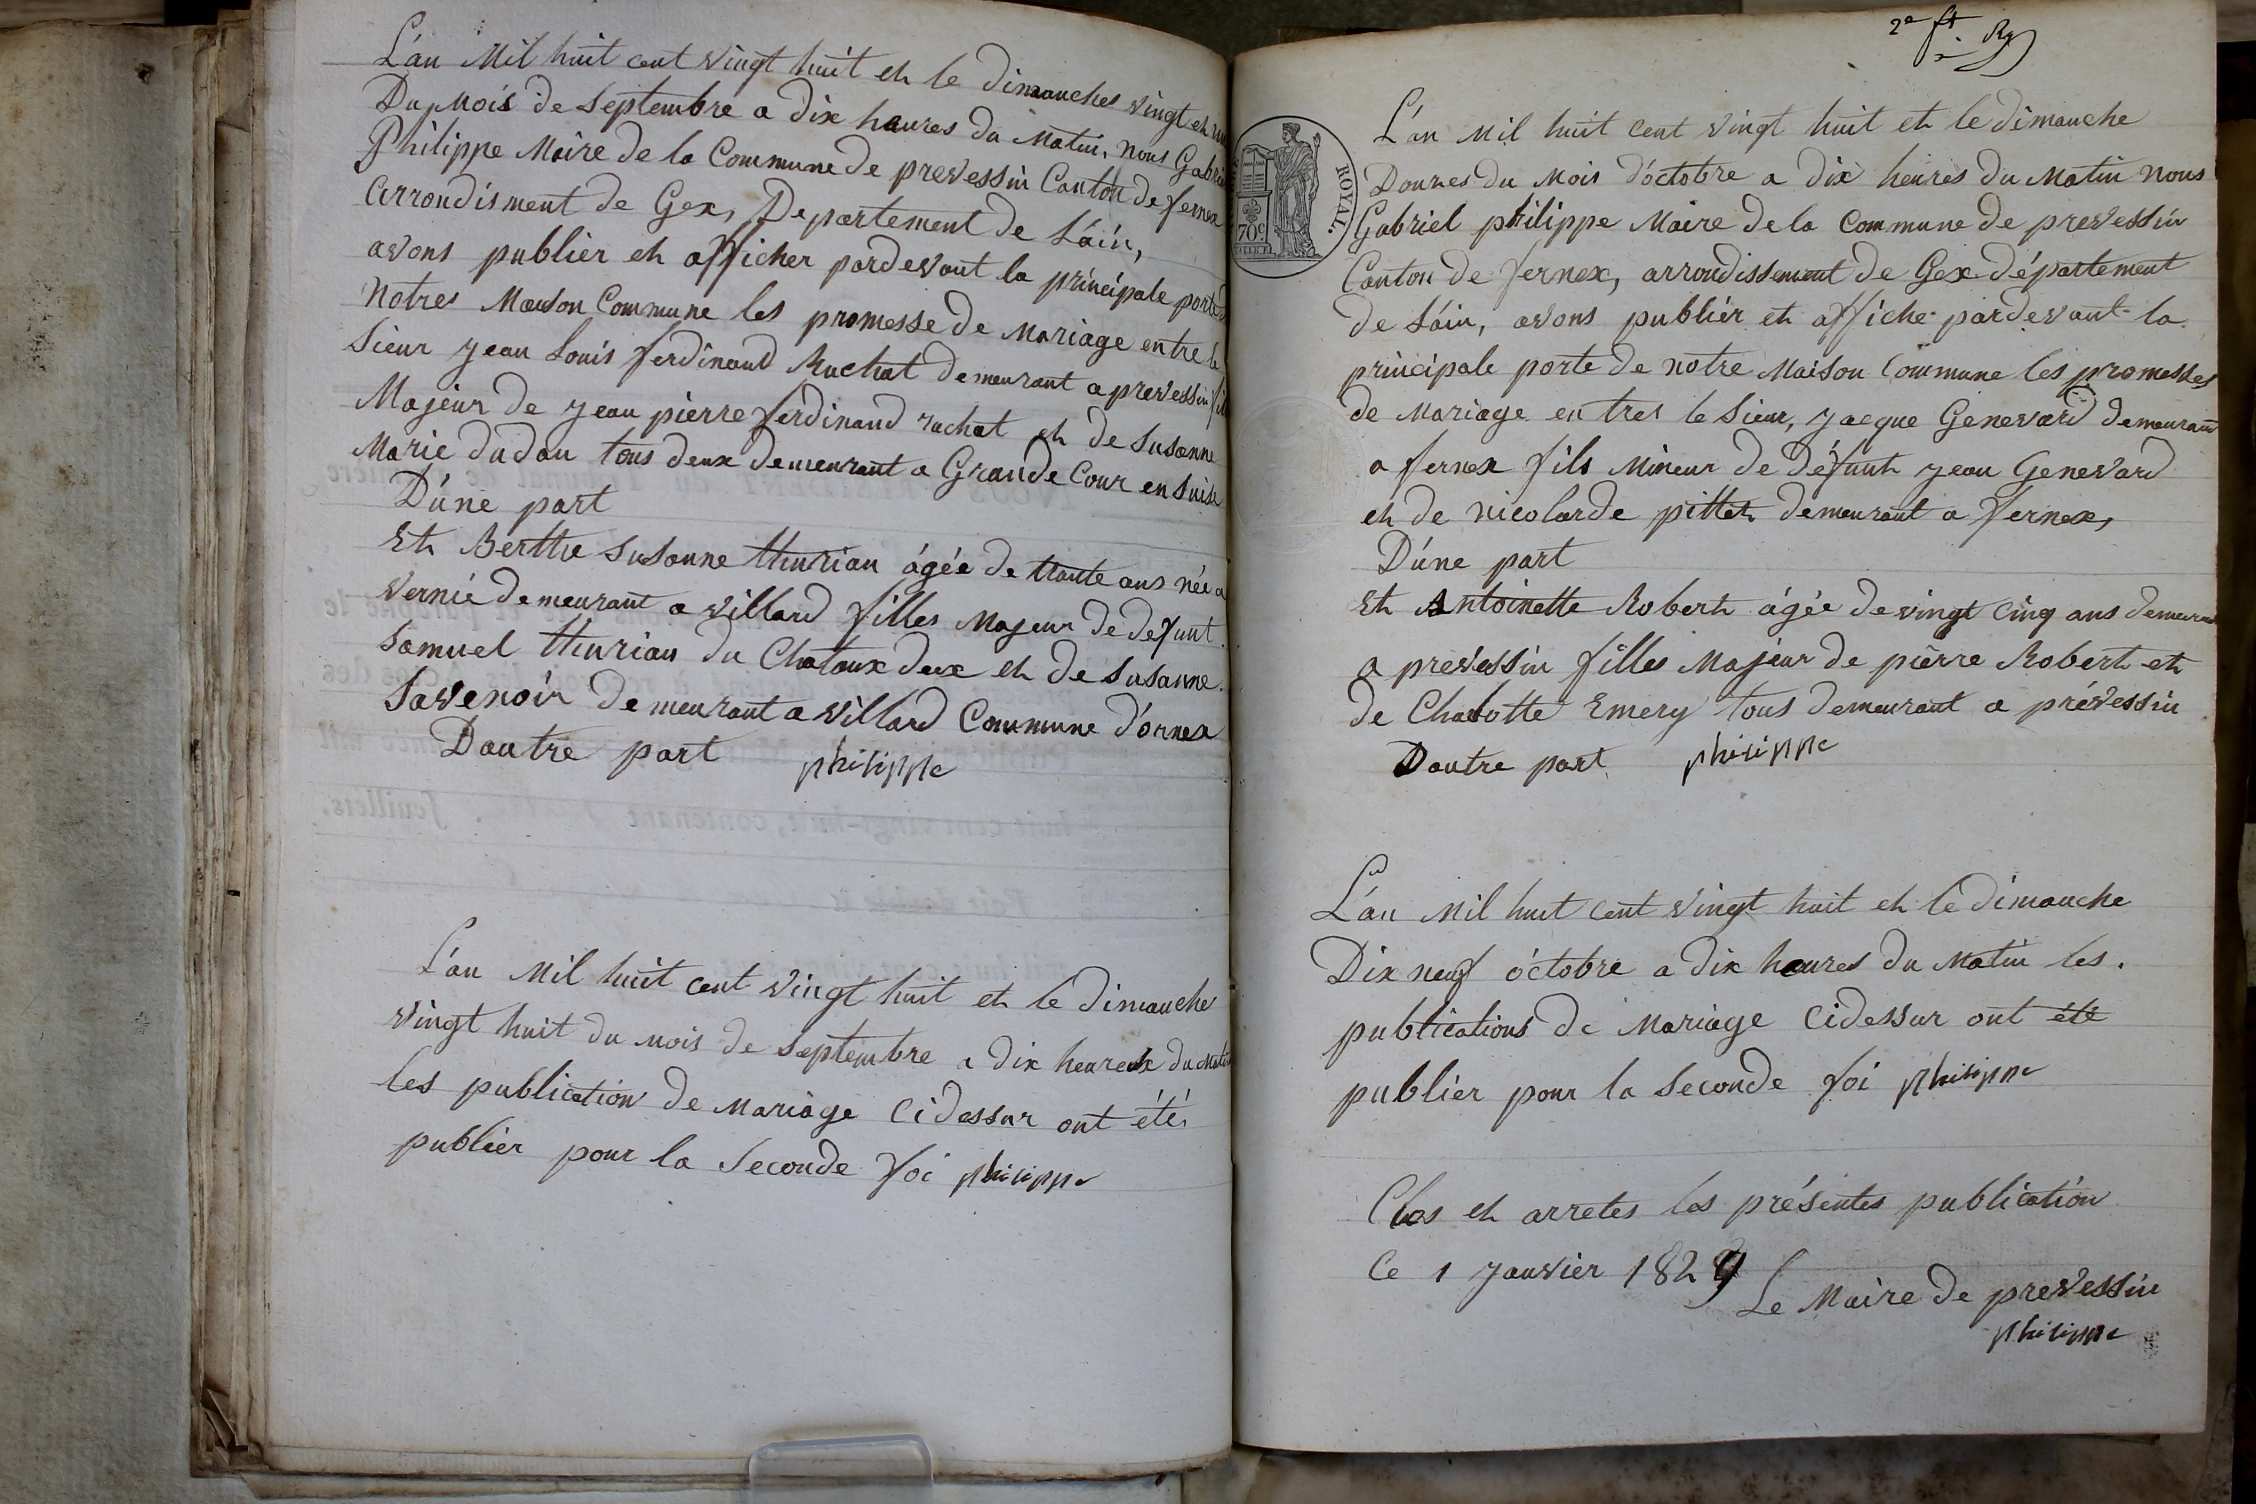 L'an Mil huit cent vingt huit et le dimanches vingt et un
Du Mois de Septembre a dix heures du Matin, nous Gabriel
Philippe Maire de la Commune de prevessin Canton de fernex
arrondisment de Gex, Departement de L'áin,
avons publier et afficher pardevant la principale porte de
Notres Maison Commune les promesse de Mariage entre le
Sieur Jean Louis ferdinand Ruchat demeurant a prevessin fils
Majeur de jean pierre ferdinand ruchat et de Susanne
Marie dudan tous deux demeurant a Grande Cour en Suise
D'úne part
Et Berthe Susanne thurian ágée de trante ans née a
Vernié demeurant a villard filles Majeur de defunt
Samuel thurian du Chataux dex et de Susanne
Savenoir demeurant a villard Commune d'ornex
Dautre part philippe
L'an Mil huit cent vingt huit et le dimanche
vingt huit du mois de Septembre a dix heureux du Matin
les publication de Mariage Cidessur ont été
publier pour la Seconde foi philippe
2e ft
ROYAL.
70c
L'an Mil huit cent vingt huit et le dimanche
Douzes du Mois d'óctobre a dix heures du Matin nous
Gabriel philippe Maire de la Commune de prevessin
Canton de fernex, arrondissement de Gex département
de L'áin, avons publier et affiche pardevant la
principale porte de notre Maison Commune les promesses
de Mariage entres le Sieur, jacque Genevard demeurant
a fernex fils Mineur de défunt jean Genevard
et de nicolarde pittet demeurant a fernex,
D'úne part
Et Antoinette Robert ágée de vingt cinq ans demeurant
a prevessin filles Majeur de pierre Robert et
de Chalotte Emery tous demeurant a prévessin
Dautre part philippe
L'an Mil huit cent vingt huit et le dimanche
Dix neuf óctobre a dix heures du Matin les.
publications de Mariage Cidessur ont été
publier pour la Seconde foi philippe
Clos et arretes les présentes publication
Ce 1 janvier 1829
Le Maire de prevessin
philippe